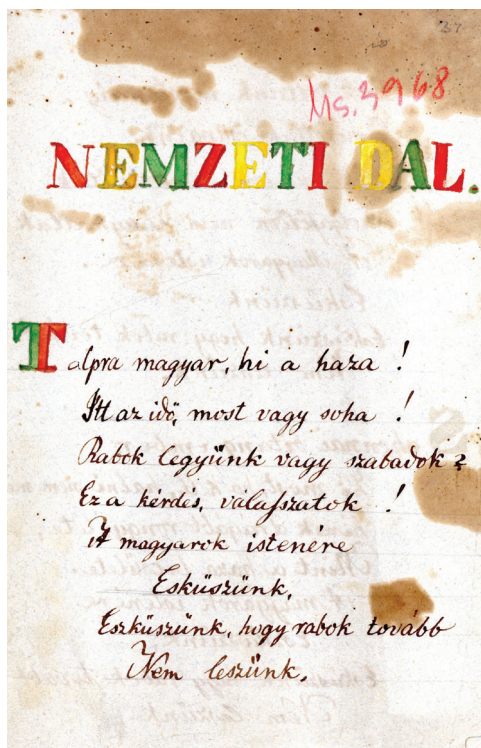 37
Ms. 3968
NEMZETI DAL.
Talpra magyar, hi a haza !
Itt az idő, most vagy soha !
Rabok legyünk vagy szabadok ?
Ez a kérdés, válasszatok !
A magyarok istenére
Esküszünk,
Eszküszünk, hogy rabok tovább
Nem leszünk.